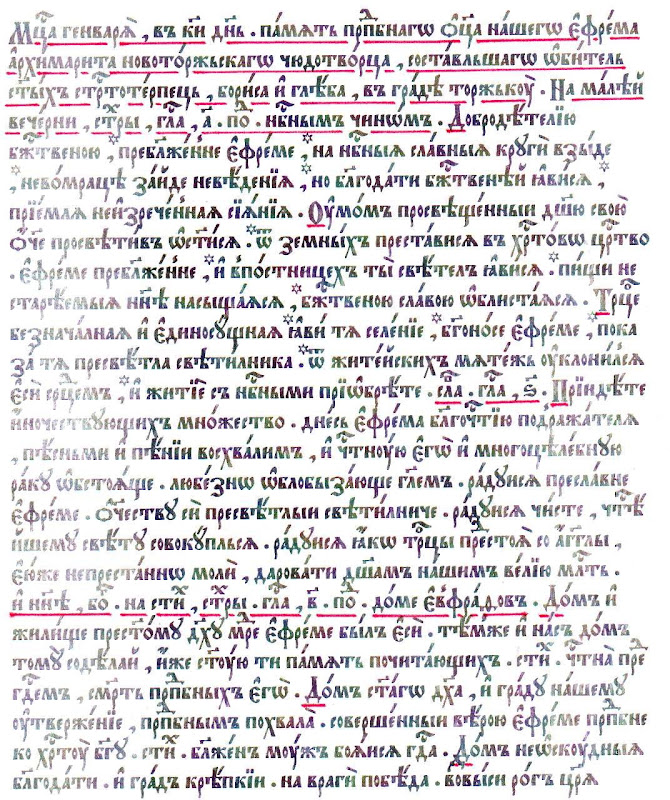 Мц҃а генварѧ̀ , въ к҃и дн҃ь . па́мѧть прпⷣбнагѡ ѻц҃а̀ на́шегѡ є҆фре́ма
а҆рхїмарита новото́ржьскагѡ чюдотво́рца , соста́вльшагѡ ѡ҆би́тель
ст҃ы́хъ стрⷭ҇тоте́рпецъ , бори́са и҆ глѣ́ба , въ гра́дѣ торжькоу̀ . На ма́лѣй
вече́рни , стⷯры , гл҃а , а҃ . поⷣ . нбⷭ҇нымъ чино́мъ . Добродѣ́телїю
бжⷭ҇твеною , пребл҃же́нне є҆фре́ме , на нбⷭ҇ныѧ сла́вныѧ кру́ги взы́де
, нево́мрацѣ за́йде невѣ́денїѧ , но бл҃года́ти бжⷭ҇твенѣй ꙗ҆ви́сѧ ,
прїе́млѧ неи҆зрече́нна сїѧ́нїѧ . Оу҆мо́мъ просвѣще́нныи дш҃ю свою̀
ѻч҃е просвѣти́въ ѡ҆сти́сѧ . ѿ земны́хъ преста́висѧ въ хрⷭ҇то́во црⷭ҇тво
. є҆фре́ме пребл҃же́нне , и҆ впо́стницехъ ты̀ свѣ́телъ ꙗ҆ви́сѧ . пи́щи не
старѣ́емыѧ нн҃ѣ насыща́ѧсѧ , бжⷭ҇твеною сла́вою ѡ҆блиста́ѧсѧ . Трⷪ҇це
безнача́лнаѧ и҆ є҆диносꙋ́щнаѧ ꙗ҆ви́ тѧ селе́нїе , бг҃оно́се є҆фре́ме , пока
за́ тѧ пресвѣ́тла свѣти́лника . ѿ жите́йскихъ мѧте́жь оу҆клони́лсѧ
є҆сѝ срⷣцемъ , и҆ житїѐ съ нбⷭ҇ными прїѡ҆брѣ́те . сла́ . гл҃а , ѕ҃ . Прїиди́те
и҆но́чествꙋющихъ мно́жество . дне́сь є҆фре́ма бл҃гоче́стїю подража́телѧ
, пѣ́сньми и҆ пѣ́нїи восхва́лимъ , и҆ чⷭ҇тную є҆гѡ̀ и҆ многоцѣле́бную
ра́кꙋ ѡ҆бстоѧ́ще . любе́знѡ ѡ҆блобыза́юще гл҃емъ . ра́дꙋисѧ пресла́вне
є҆фре́ме . ѻч҃ествꙋ сѝ пресвѣ́тлыи свѣти́лниче . ра́дꙋисѧ чи́сте , чⷭ҇тѣ
йшемꙋ свѣ́тꙋ совокꙋ́пльсѧ . ра́дꙋисѧ ꙗ҆́кѡ трⷪ҇цы престоѧ̀ со а҆́гг҃лы ,
є҆ю́же непреста́ннѡ молѝ , дарова́ти дш҃а́мъ на́шимъ ве́лїю мл҃ть .
и҆ нн҃ѣ , бо҃ . на стиⷯ , стⷯры . гл҃а , в҃ . поⷣ . до́ме є҆ѵфра́довъ . До́мъ и҆
жили́ще прест҃о́мꙋ дх҃ꙋ мре є҆фре́ме бы́лъ є҆сѝ . тѣ́мже и҆ на́съ до́мъ
то́мꙋ содѣ́лай , и҆́же ст҃ꙋ́ю ти па́мѧть почита́ющихъ . стиⷯ . чⷭ҇тна̀ пре
гдⷭ҇емъ , сме́рть прпⷣбныхъ є҆гѡ̀ . До́мъ ст҃а́гѡ дх҃а , и҆ гра́дꙋ на́шемꙋ
оу҆твержде́нїе , прпⷣбнымъ похвала̀ . соверше́нныи вѣ́рою є҆фре́ме прпⷣбне
ко хрⷭ҇тꙋ̀ бг҃ꙋ . стиⷯ . бл҃же́нъ моу́жъ боѧ́исѧ гдⷭ҇а . До́мъ неѡ҆скꙋ́дныѧ
бл҃года́ти . и҆ гра́дъ крѣ́пкїи . на врагѝ побѣ́да . вовы́си ро́гъ цр҃ѧ̀